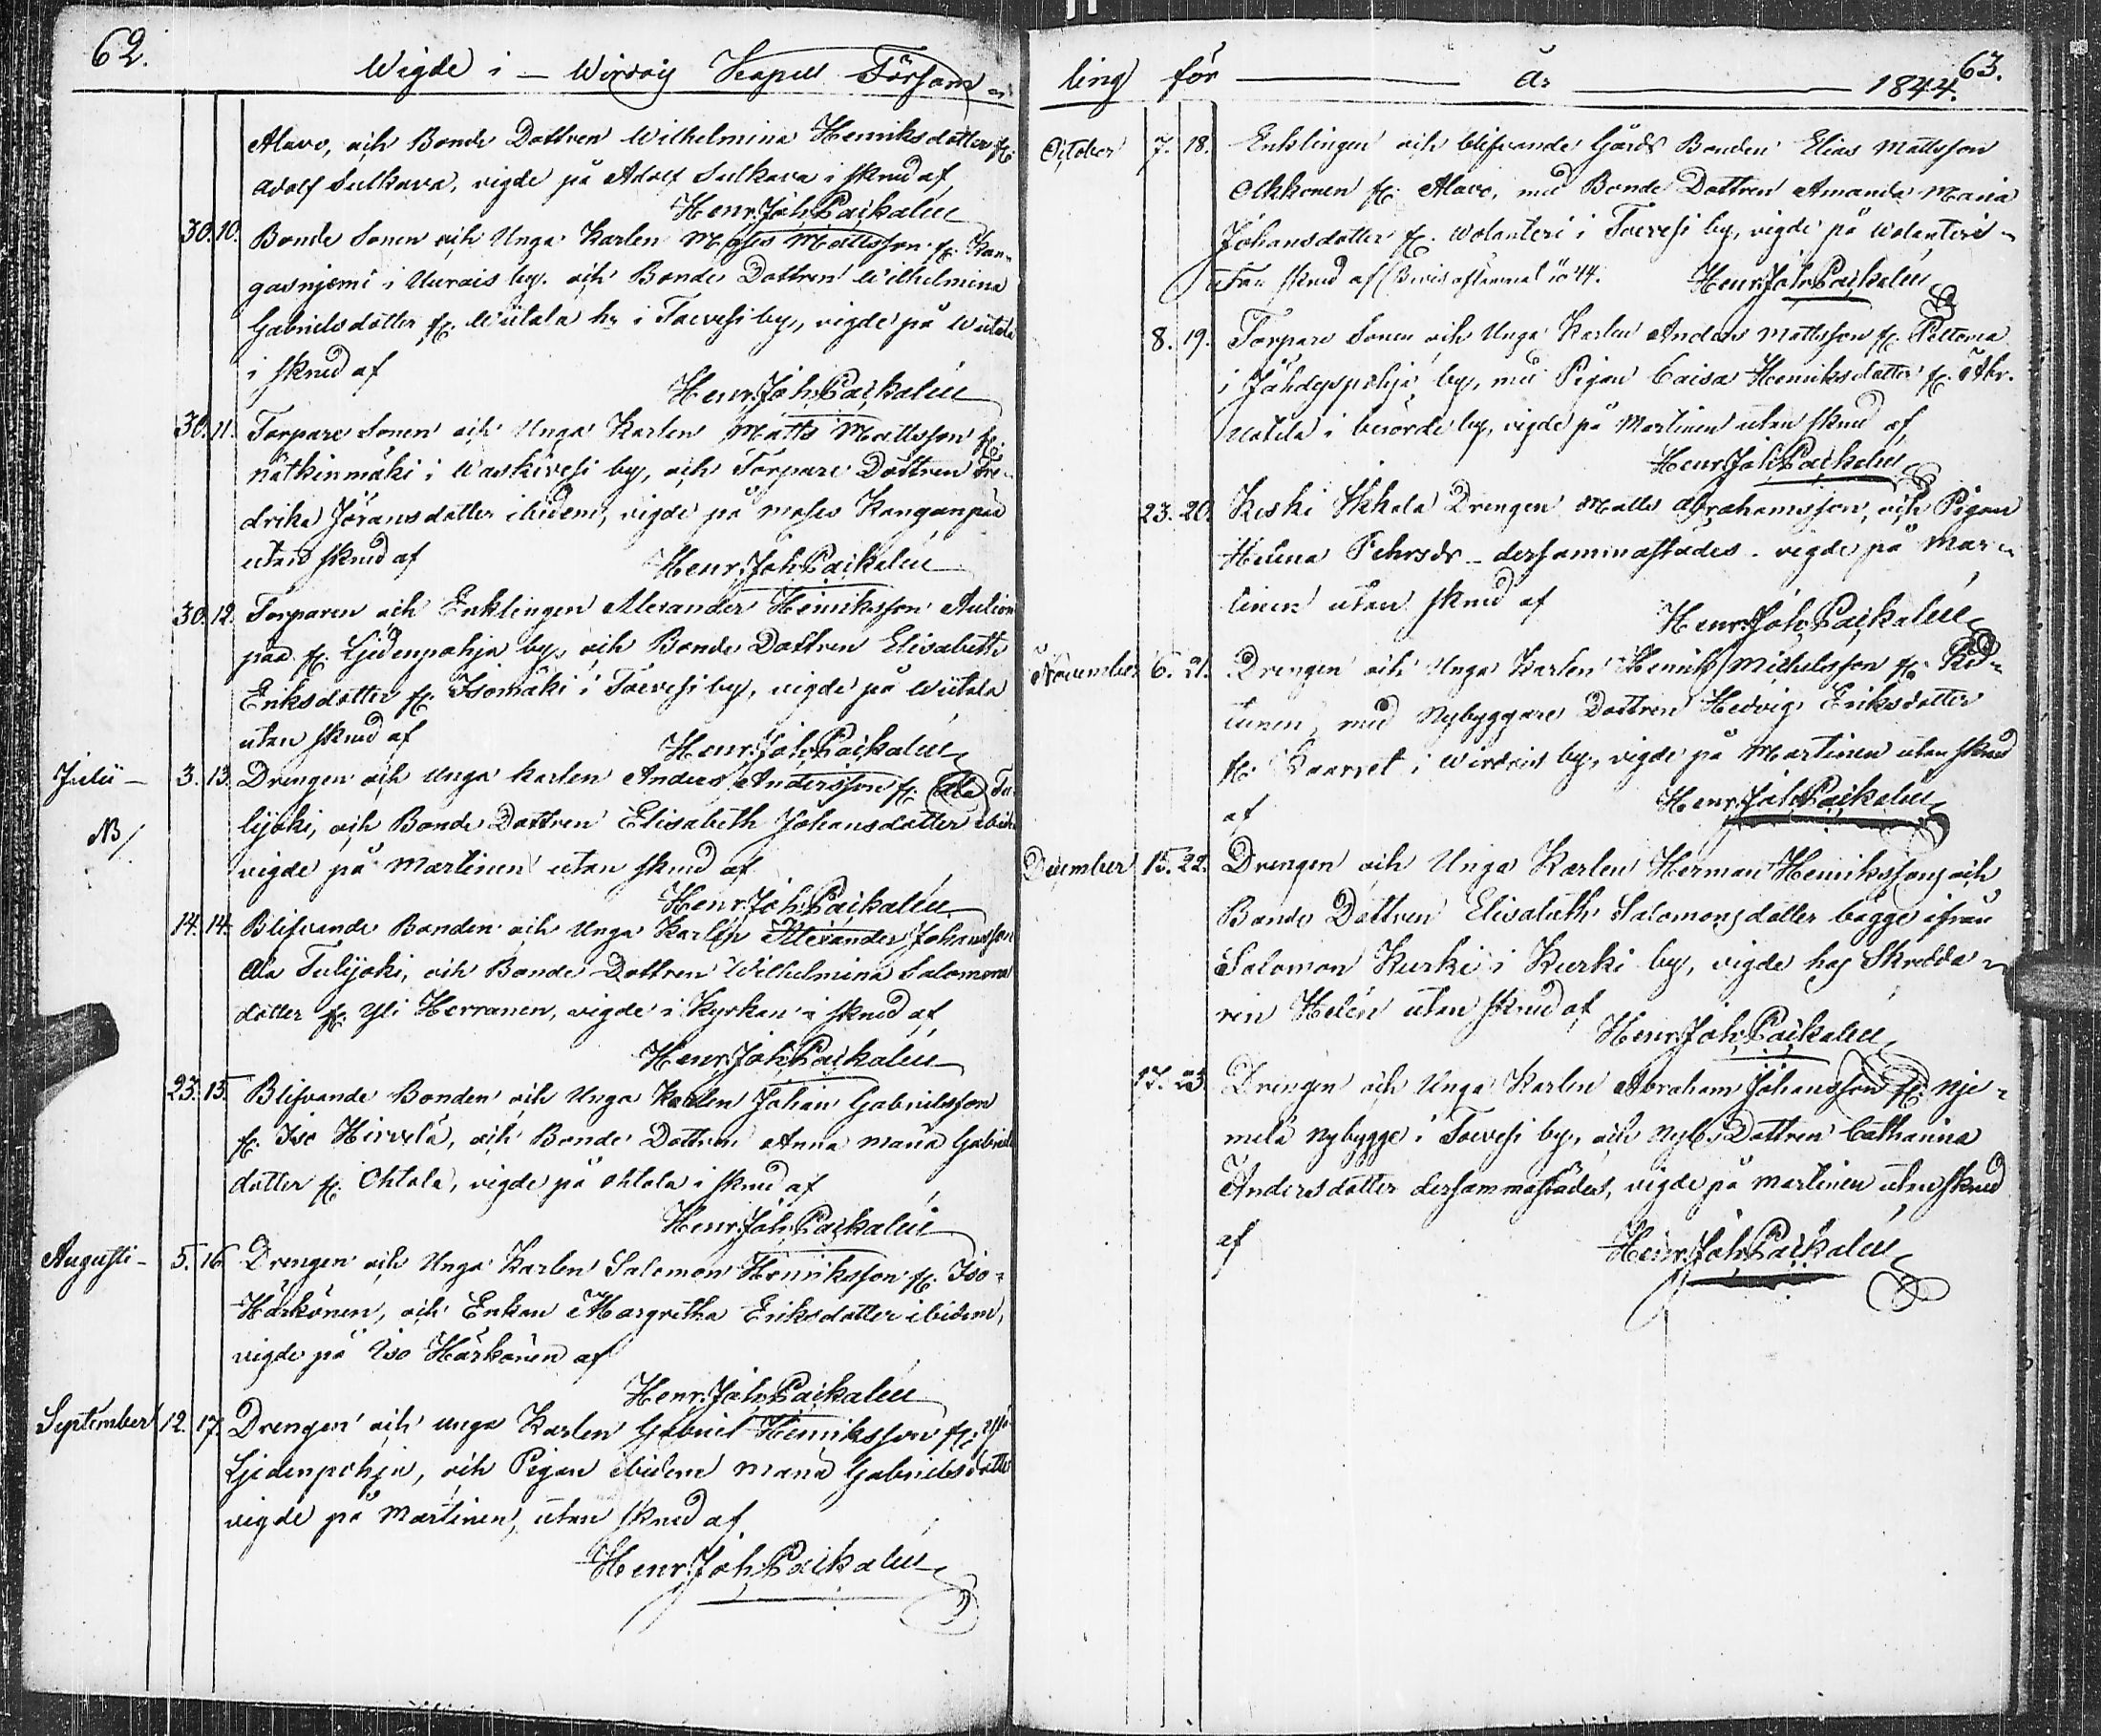 62.
Wigde i — Wirdois Kapell Försam-
Alavo, och Bonde Dottren Wilhelmina Henriksdotter fr.
Adolf Sulkava, vigde på Adolf Sulkava i skrud af
Henr. Joh. Paikalén
30. 10. Bonde Sonen och Unga Karlen Moses Mattsson fr. Kan-
gasnjemi i Uurais by. och Bonde Dottren Wilhelmina
Gabrielsdotter fr. Wiitala i Toevesi by, vigde på Wiitala
i skrud af
Henr. Joh. Paikalén
30. 11. Torpare Sonen och Unga Karlen Matts Mattsson fr.
nätkinmäki i Waskivesi by, och Torpare Dottren Fre-
drika Jöransdotter ibidem, vigde på Moses Kanganpää
utan skrud af
Henr. Joh. Paikalén
30. 12. Torparen och Enklingen Alexander Henriksson Aution
paa fr. Ljedenpohja by, och Bonde Dottren Elisabeth
Eriksdotter fr. Isomäki i Toevesi by, vigde på Wiitala
utan skrud af
Henr. Joh. Paikalén
Julii — 3. 13. Drengen och Unga Karlen Anders Andersson fr. Ala Tu-
lijoki, och Bonde Dottren Elisabeth Johansdotter ibid.
NB/
vigde på Martinen utan skrud af
Henr. Joh. Paikalén
14. 14. Blifvande Bonden och Unga Karlen Alexander Johansson
Ala Tulijoki, och Bonde Dottren Wilhelmina Salomons
dotter fr. Yli Herranen, vigde i Kyrkan i skrud af
Henr. Joh. Paikalén
23. 15. Blifvande Bonden och Unga Karlen Johan Gabrielsson
fr. Iso Hirvelä, och Bonde Dottren Anna Maria Gabriels
dotter fr. Ohtola, vigde på Ohtola i skrud af
Henr. Joh. Paikalén
Augusti — 5. 16. Drengen och Unga Karlen Salomon Henriksson fr. Iso-
Härkönen, och Enkan Margretha Eriksdotter ibidem,
vigde på Iso Härkönen af
Henr. Joh. Paikalén
September 12. 17. Drengen och unga Karlen Gabriel Henriksson fr.
Ljedenpohja, och Pigan ibidem Maria Gabrielsdotter
vigde på Martinen, utan skrud af
Henr. Joh. Paikalén
63.
ling för — år — 1844.
October 7. 18. Enklingen och blifvande Gårds Bonden Elias Mattsson
Olkkonen fr. Alavo, med Bonde Dottren Amanda Maria
Johansdotter fr. Wolanteri i Toevesi by, vigde på Wolanteri
utan skrud af Henr. Joh. Paikalén
8. 19. Torpare Sonen och Unga Karlen Anders Mattsson fr. Peltoma
i Jähdyspohja by, med Pigan Caisa Henriksdotter fr. Abr.
Uotila i berörde by, vigde på Martinen utan skrud af
Henr. Joh. Paikalén
23. 20. Keski Ikkala Drengen Matts Abrahamsson, och Pigan
Helena Pehrsdr — dersammastades — vigde på Mar-
tinen utan skrud af
Henr. Joh. Paikalén
November 6. 21. Drengen och Unga Karlen Henrik Michelsson fr.
tunen, med Nybyggare Dottren Hedvig Eriksdotter
fr. Saarret i Wirdois by, vigde på Martinen utan skrud
af
Henr. Joh. Paikalén
December 15. 22. Drengen och Unga Karlen Herman Henriksson, och
Bonde Dottren Elisabeth Salomonsdotter bägge ifrån
Salomon Kurki i Kurki by, vigde hos Skredda-
ren Helén utan skrud af
Henr. Joh. Paikalén
17. 23. Drengen och Unga Karlen Abraham Johansson fr. Nje-
melä nybygge i Toevesi by, och Nyb. Dottren Catharina
Andersdotter dersammastädes, vigde på Martinen utan skrud
af
Henr. Joh. Paikalén